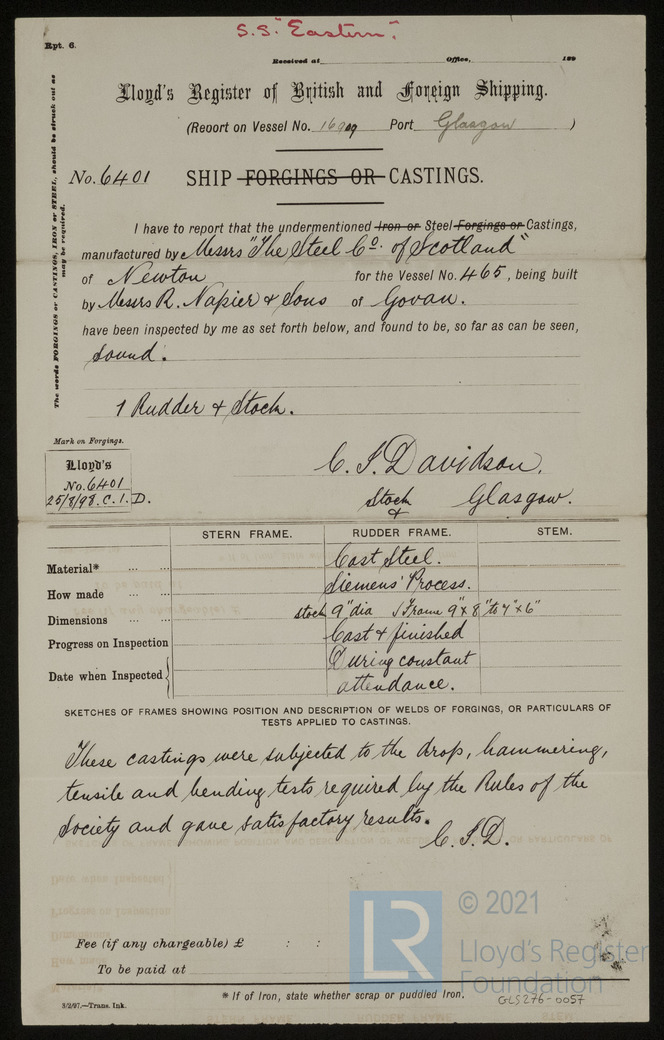 S.S. "Eastern".
Rpt. 6.
Received at Office, 189
Lloyd's Register of British and Foreign Shipping.
(Report on Vessel No. Port Glasgow )
No. 6401 SHIP FORGINGS OR CASTINGS.
The words FORGINGS or CASTINGS, IRON or STEEL, should be struck out as
may be required.
I have to report that the undermentioned Iron or Steel Forgings or Castings,
manufactured by Messrs "The Steel Co. of Scotland"
of Newton for the Vessel No. 465, being built
by Messrs R. Napier & Sons of Govan.
have been inspected by me as set forth below, and found to be, so far as can be seen,
sound.
1 Rudder & Stock.
Mark on Forgings.
Lloyd's
No. 6401
25/8/98. C. I. D.
C. I. Davidson.
Glasgow.
Stock
&
STERN FRAME. RUDDER FRAME. STEM.
Material* ... ... Cast Steel.
How made ... ... Siemens' Process.
Dimensions ... ... stock 9" dia Frame 9" x 8" to 7" x 6"
Progress on Inspection Cast & finished
Date when Inspected During constant
attendance.
SKETCHES OF FRAMES SHOWING POSITION AND DESCRIPTION OF WELDS OF FORGINGS, OR PARTICULARS OF
TESTS APPLIED TO CASTINGS.
These castings were subjected to the drop, hammering,
tensile and bending tests required by the Rules of the
Society and gave satisfactory results.
C. I. D.
Fee (if any chargeable) £ : :
To be paid at
* If of Iron, state whether scrap or puddled Iron.
3/2/97.—Trans. Ink.
GLS276-0057
LR
© 2021
Lloyd's Register
Foundation